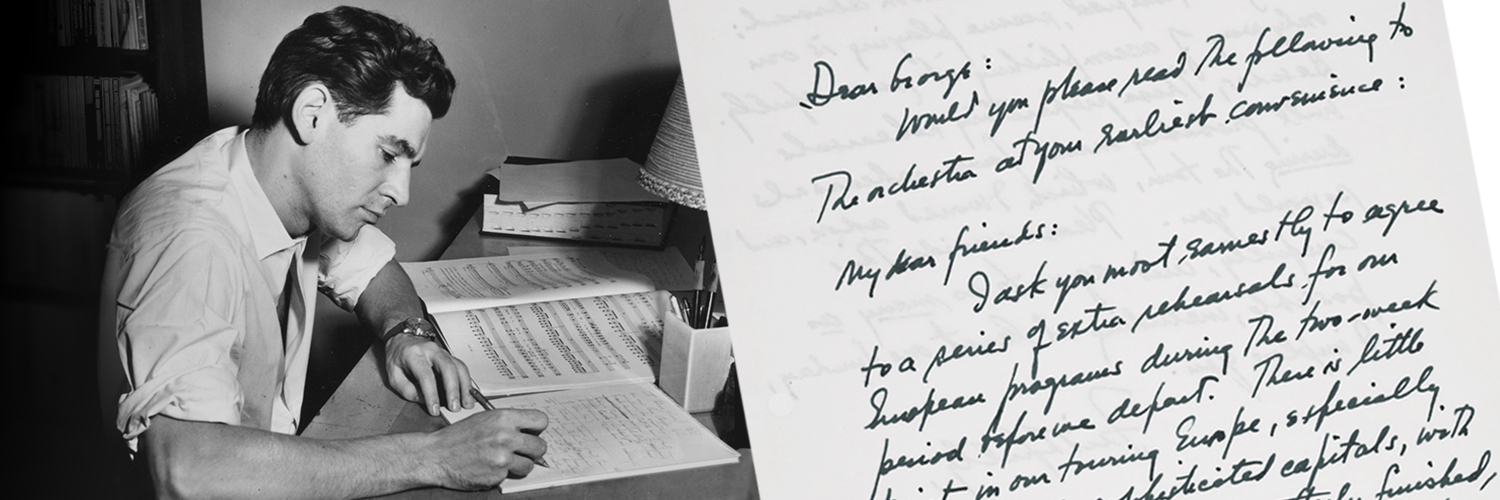 Dear George:
Would you please read the following to
The orchestra at your earliest convenience:
My dear friends:
I ask you most earnestly to agree
to a series of extra rehearsals for our
European programs during the two-week
period before we depart. There is little
point in our touring Europe, especially
sophisticated capitals, with
finished,